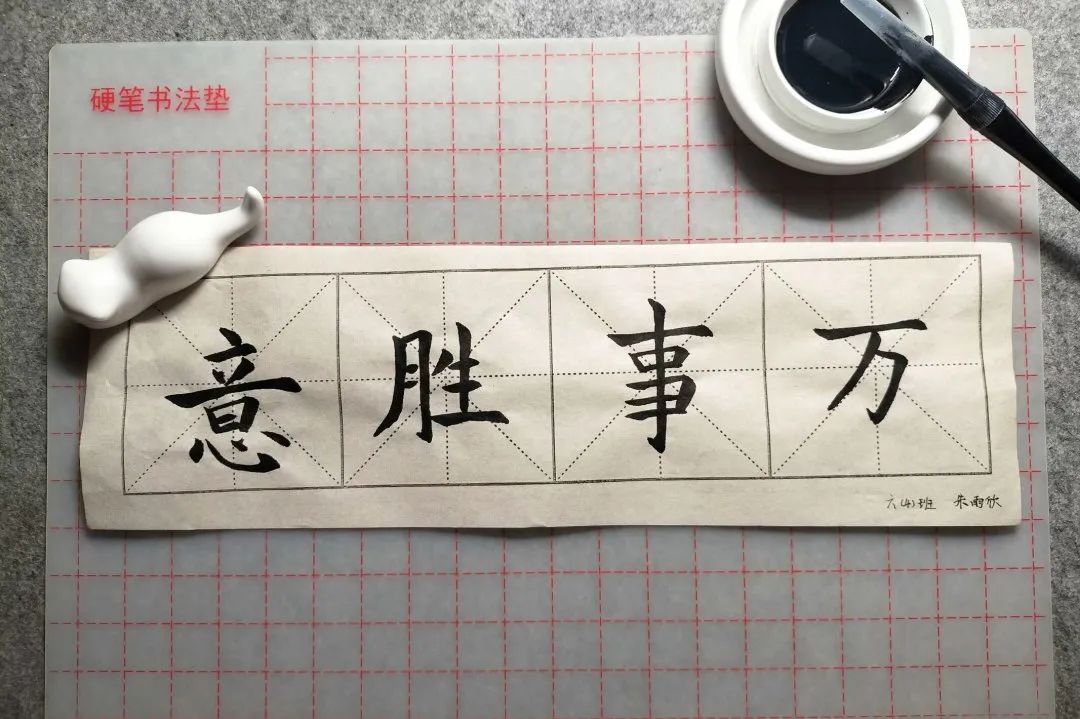 硬笔书法垫
万事胜意
六(4)班 朱雨欣